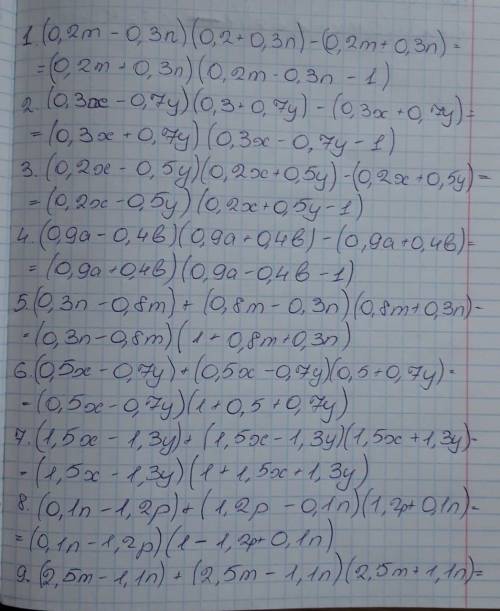 1. (0,2m - 0,3n)(0,2+0,3n)-(0,2m+0,3n)=
=(0,2m+0,3n)(0,2m-0,3n-1)
2. (0,3x-0,7y)(0,3+0,7y)-(0,3x+0,7y)=
=(0,3x+0,7y)(0,3x-0,7y-1)
3. (0,2x-0,5y)(0,2x+0,5y)-(0,2x+0,5y)=
=(0,2x-0,5y)(0,2x+0,5y-1)
4. (0,9a-0,4в)(0,9a+0,4в)-(0,9a+0,4в)=
=(0,9a+0,4в)(0,9a-0,4в-1)
5. (0,3n-0,8m)+(0,8m-0,3n)(0,8m+0,3n)=
=(0,3n-0,8m)(1+0,8m+0,3n)
6. (0,5x-0,7y)+(0,5x-0,7y)(0,5+0,7y)=
=(0,5x-0,7y)(1+0,5+0,7y)
7. (1,5x-1,3y)+(1,5x-1,3y)(1,5x+1,3y)=
=(1,5x-1,3y)(1+1,5x+1,3y)
8. (0,1n-1,2p)+(1,2p-0,1n)(1,2p+0,1n)=
=(0,1n-1,2p)(1-1,2p+0,1n)
9. (2,5m-1,1n)+(2,5m-1,1n)(2,5m+1,1n)=